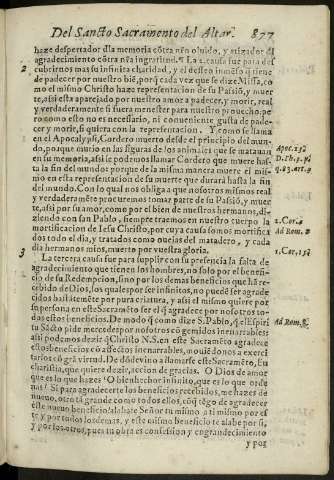 Del Sancto Sacramento del Altar. 877
haze despertador dla memoria cõtra nrõ oluido, y atizador dl
agradecimiento cõtra nrã ingratitud. ¶ La 2. causa fue para des
2 cubrirnos mas su infinita charidad, y el desseo inmẽso q̃ tiene
de padecer por nuestro biẽ, porq̃ cada vez que se dize Missa, co
mo el mismo Christo haze representacion de su Passiõ, y muer
te, assi esta aparejado por nuestro amor a padecer, y morir, real
y verdaderamente si fuera menester para nuestro prouecho, pe
ro como esto no es necessario, ni conueniente gusta de pade-
cer y morir, si quiera con la representacion. Y como se llama
en el Apocalyps, Cordero muerto desde el principio del mun-
do, porque murio en las figuras de los animales que se matauan
en su memoria, assi se podemos llamar Cordero que muere has-
ta la fin del mundo: porque de la misma manera muere el mis-
mo en esta representacion de su muerte que durará hasta la fin
del mundo. Con lo qual nos obliga a que nosotros mismos real
y verdaderamẽte procuremos tomar parte de su Passiõ, y muer
te, assi por su amor, como por el bien de nuestros hermanos, di-
ziendo con san Pablo, siempre traemos en nuestro cuerpo la
mortificacion de Iesu Christo, por cuya causa somos mortifica
dos todo el dia, y tratados como ouejas del matadero, y cada
dia hermanos mios, muerto por vuestra gloria.
3 La tercera causa fue para supplir con su presencia la falta de
agradecimiento que tienen los hombres, no solo por el benefi-
cio de su Redempcion, sino por los demas beneficios que hã re-
cebido de Dios, los quales por ser infinitos, no puedẽ ser agrade
cidos bastãtemẽte por pura criatura, y assi el mismo quiere por
su persona en este Sacramẽto ser el q̃ agradece por nosotros to-
dos estos beneficios. De modo q̃ como dize S. Pablo, q̃ el Espiri
tu Sãcto pide merced por nosotros cõ gemidos inenarrables
assi podemos dezir q̃ Christo N. S. en este Sacramẽto agradece
estos beneficios cõ affectos inenarrables, mouiẽdonos a exerci
tarlos cõ grã virtud. De dõde vino a llamarse este Sacramẽto, Eu
charistia, que quiere dezir, accion de gracias. O Dios de amor
que es lo que hazes? O bienhechor infinito, que es lo que orde
nas? Si para agradecerte los beneficios recebidos, me hazes de
nueuo, otro tã grande como todos ellos, cõ q̃ tẽgo de agradecer
este nueuo beneficio? alabate Señor tu mismo a ti mismo por es
te y por todos los demas, y este mismo beneficio te alabe por si,
y por los otros, pues tu obra es confession y engrandecimiento
y por
Apoc. 13.
D. Th. 3. p.
q. 83. art.
2. Cor. 4
Ad Rom. 8
1. Cor. 15
Ad Rom. 8.